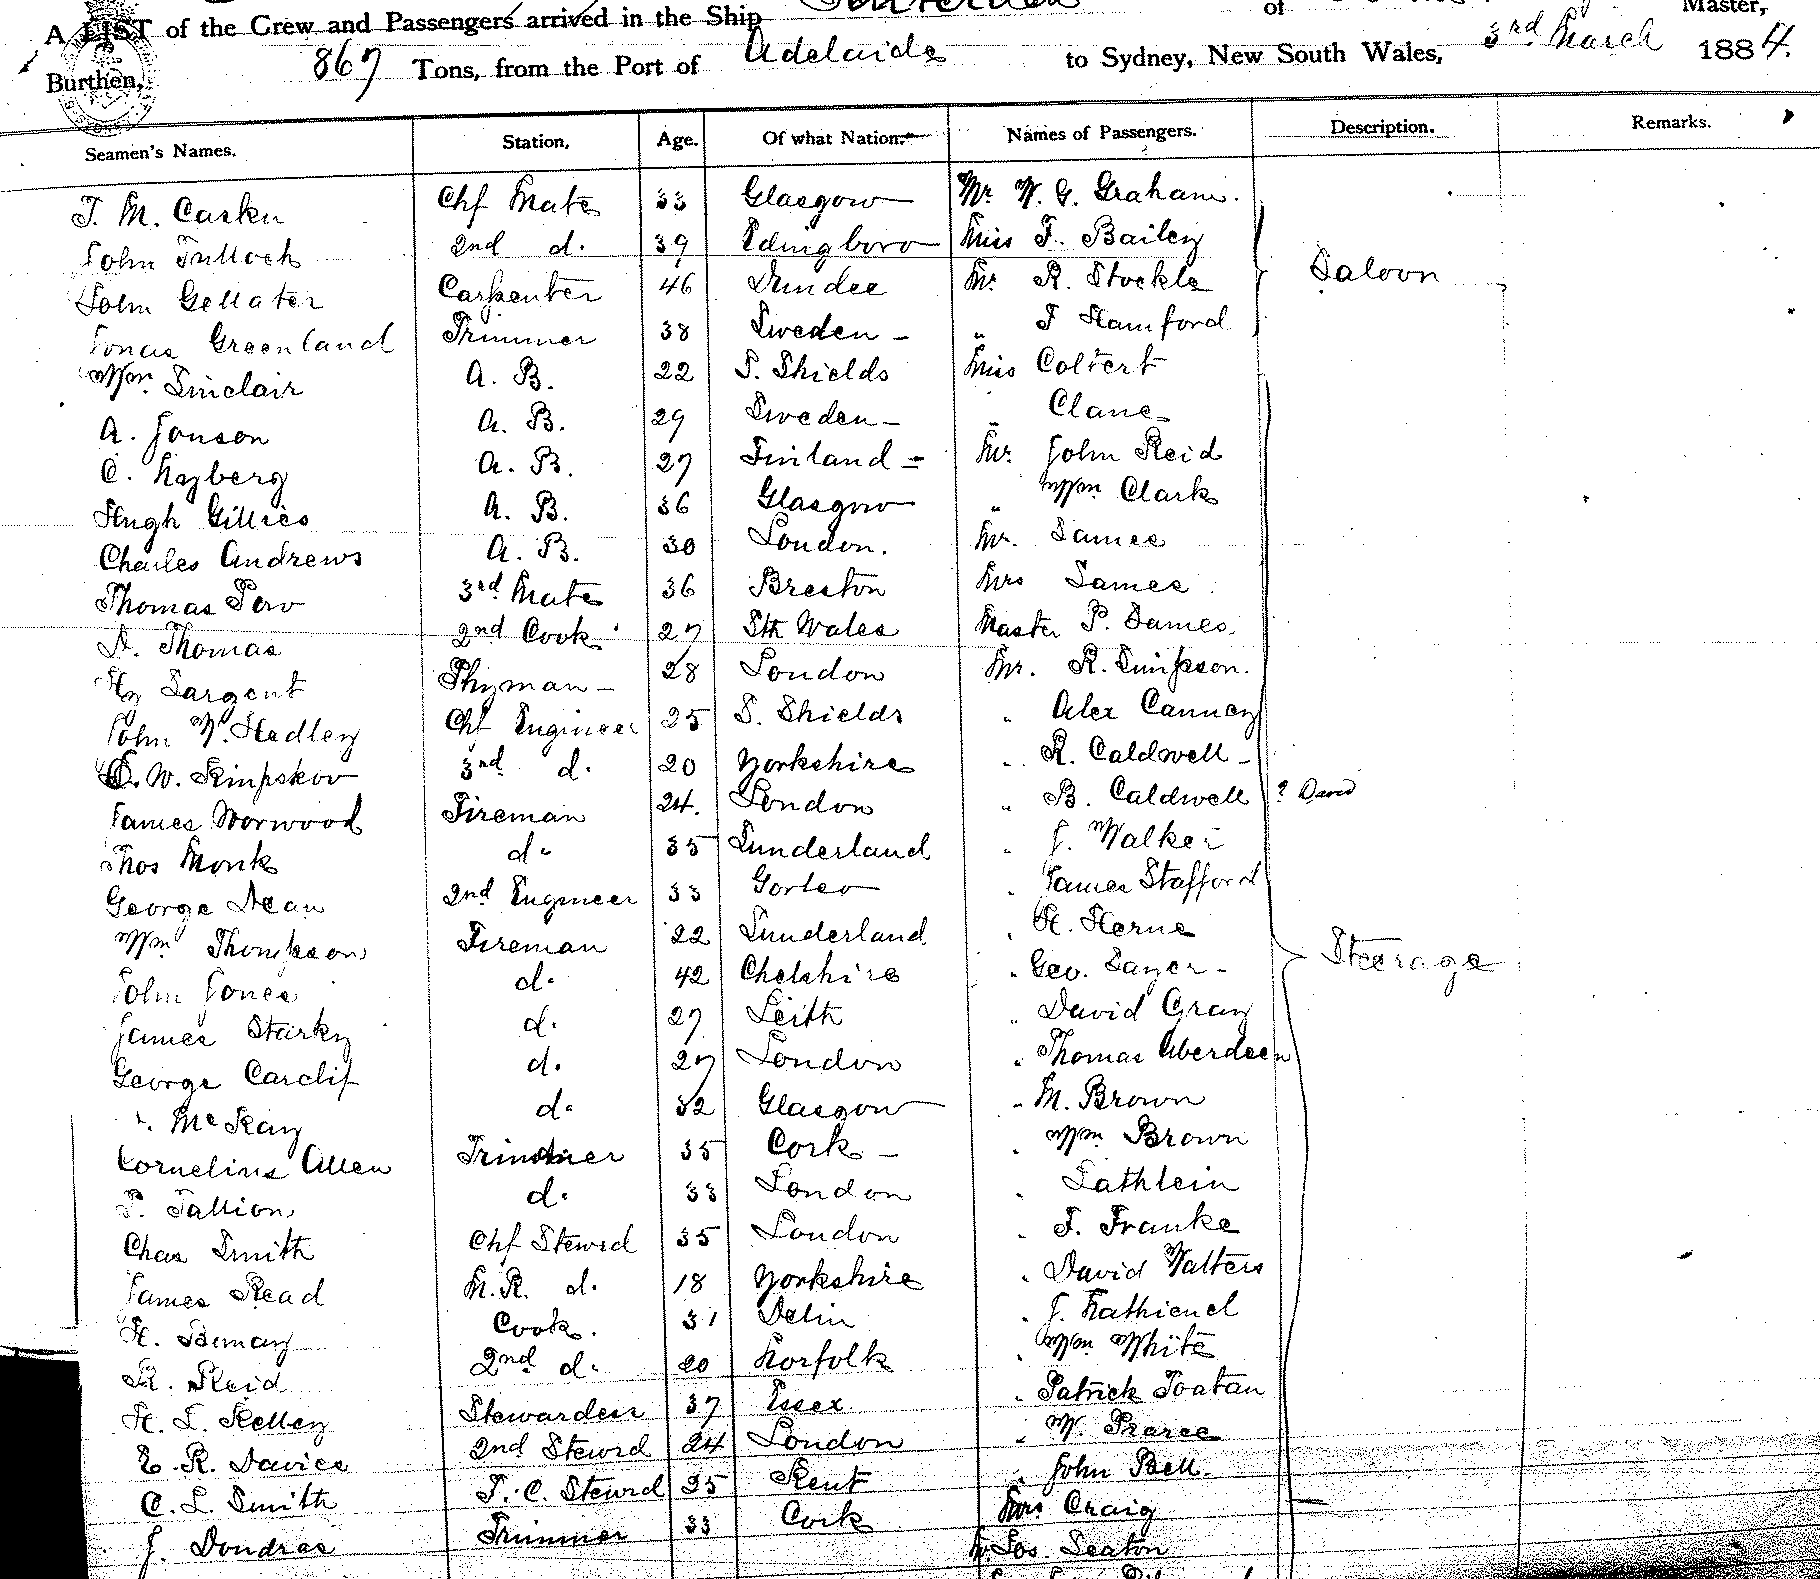 A LIST of the Crew and Passengers arrived in the Ship of Master,
Burthen, 867 Tons, from the Port of Adelaide to Sydney, New South Wales, 3rd March 1884.
Seamen's Names. Station. Age. Of what Nation. Names of Passengers. Description. Remarks.
J. M. Chf Mate 33 Glasgow Mr. W. G. Graham.
John Tulloch 2nd d. 39 Edingboro Miss F. Bailey
John Gellater Carpenter 46 Dundee Mr. R. Stockle Saloon
Jonas Greenland Trimmer 38 Sweden " J Hamford
Wm Sinclair A. B. 22 S. Shields Miss Colvert
A. Jonson A. B. 29 Sweden " Clane
C. Nyberg A. B. 27 Finland Mr. John Reid
Hugh Gillies A. B. 36 Glasgow " Wm Clark
Charles Andrews A. B. 30 London. Mr. James
Thomas 3rd Mate 36 Mrs James
Thomas 2nd Cook 27 Sth Wales Master P. James
Hy Sargent 28 London Mr. R. Simpson.
John W. Hedley Chf Engineer 25 S. Shields " Alex Canney
W. 3rd d. 20 Yorkshire " R. Caldwell
James Norwood Fireman 24. London " B. Caldwell ? David
Thos Monk d. 35 Sunderland " J. Walker
George Dean 2nd Engineer 33 " James Stafford
Wm Thompson Fireman 22 Sunderland " H. Herne
John Jones d. 42 Cheshire " Geo. Sayer Steerage
James Starky d. 27 Leith " David Gray
George Carclif d. 27 London " Thomas Aberdeen
McKay d. 32 Glasgow " M. Brown
Cornelius Allen Trimmer 35 Cork " Wm Brown
Tallion d. 33 London " Lathlein
Chas Smith Chf Stewrd 35 London " F. Franke
James Read M. R. d. 18 Yorkshire " David Walters
H. Cook. 31 " J. Nathienel
R. Reid 2nd d. 20 Norfolk " Wm White
H. L. Kelley Stewardess 37 Essex " Patrick Toatan
E. R. Davies 2nd Stewrd 24 London " W. Pearce
C. L. Smith F. C. Stewrd 25 Kent " John Bell.
J. Dondras Trimmer 33 Cork Mrs Craig
Jos. Seaton